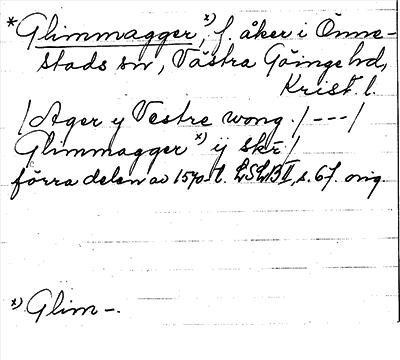 *Glimmagger,ˣ⁾ f. åker i Önne-
stads sn, Västra Göinge hd,
Krist. l.
/Ager y Vestre wong./ --- /
Glimmaggerˣ⁾ ÿ skr̄/
förra delen av 1570-t. LSLB I, s. 67. orig.
ˣ⁾ Glim-.